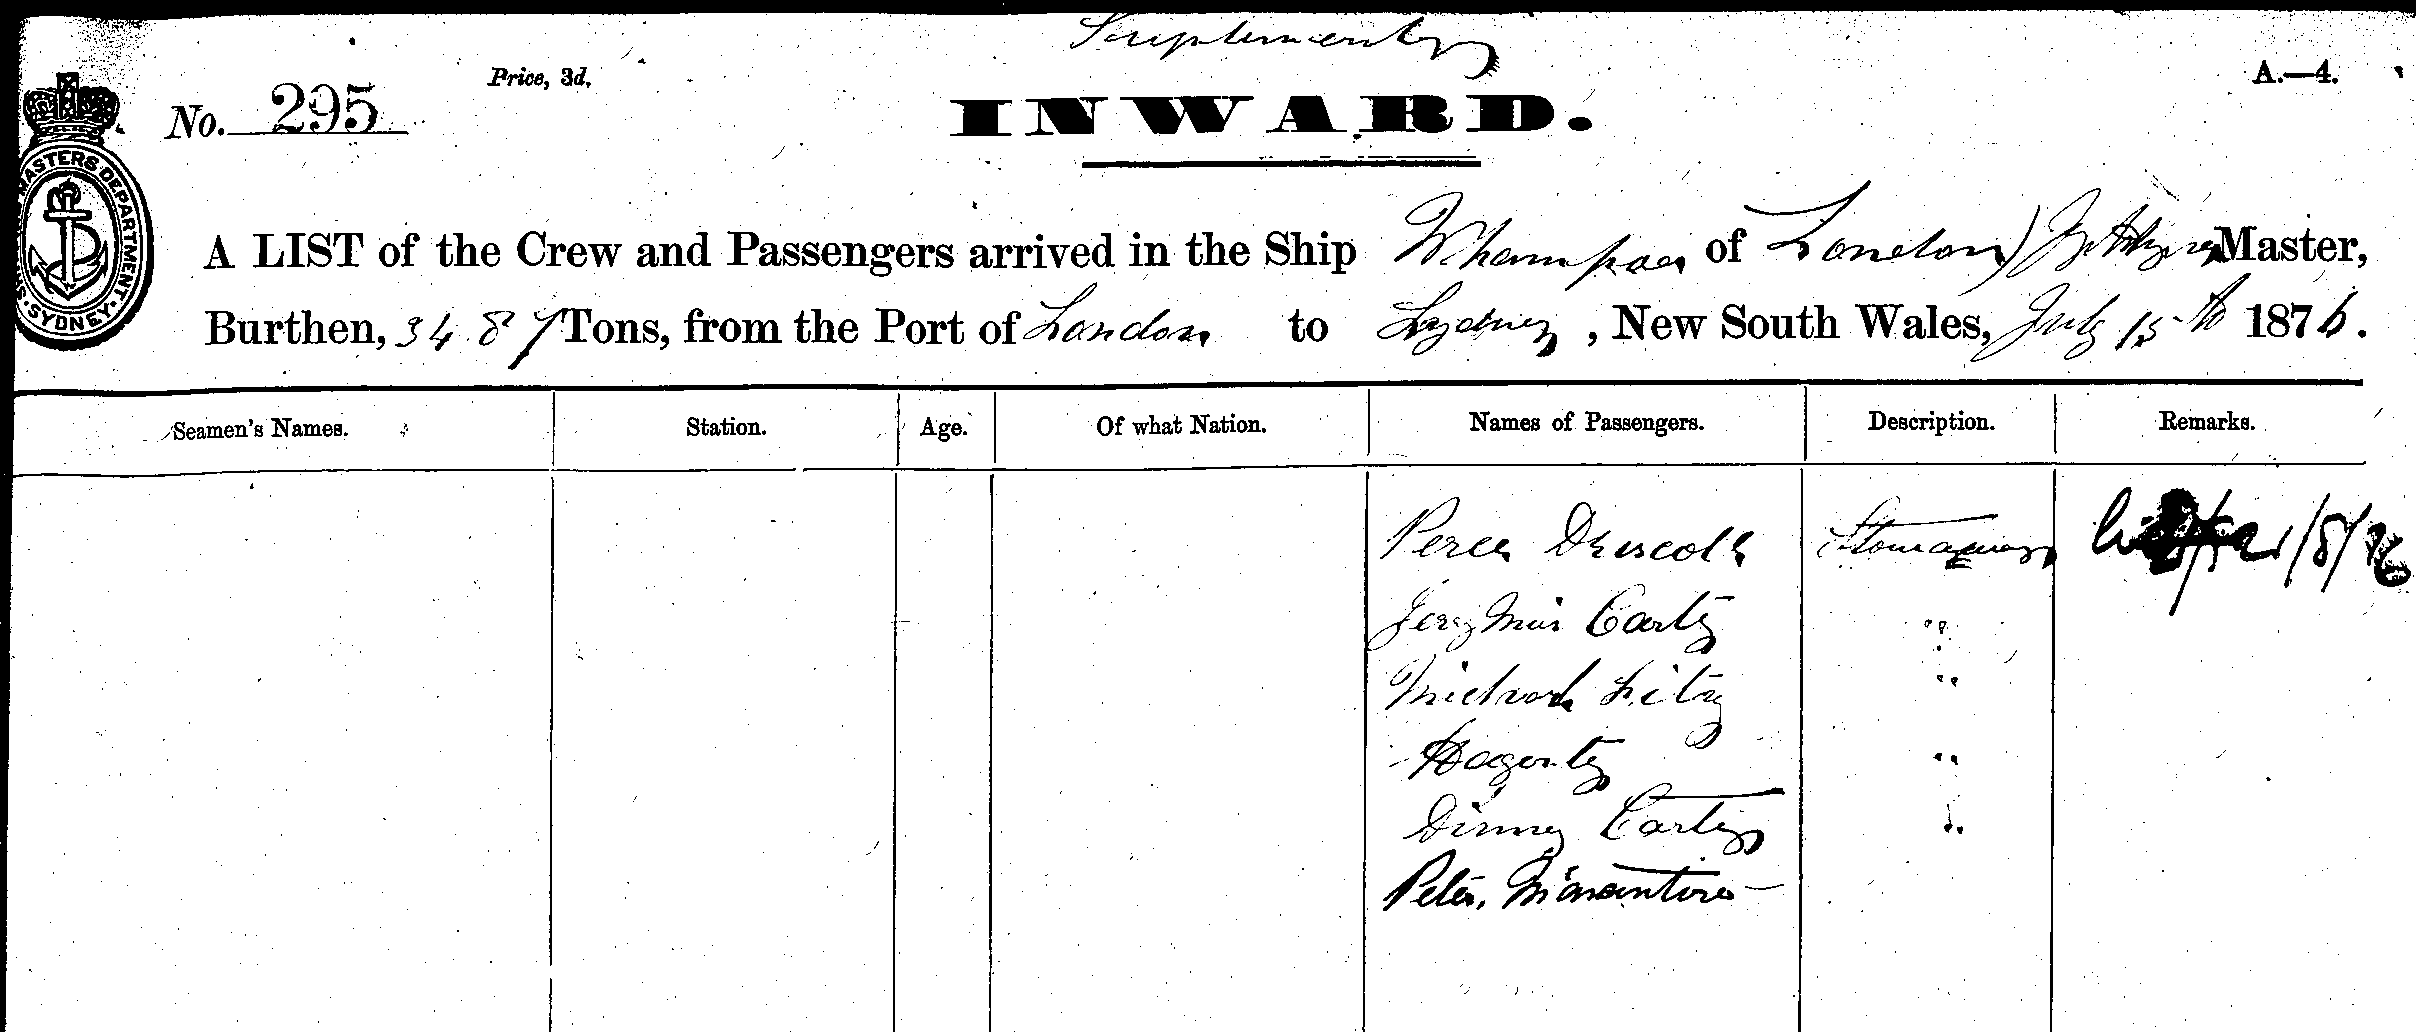 Suplementy
No. 295
Price, 3d.
A.—4.
INWARD.
MASTERS DEPARTMENT. SYDNEY.
A LIST of the Crew and Passengers arrived in the Ship Whampoa of London Master,
Burthen, 3487 Tons, from the Port of London to Sydney, New South Wales, July 15th 1876.
Seamen's Names. Station. Age. Of what Nation. Names of Passengers. Description. Remarks.
Driscoll Stowaway 21/8/76
Carty "
Michael Fitz "
Hagerty "
Dinny Carty "
Peter